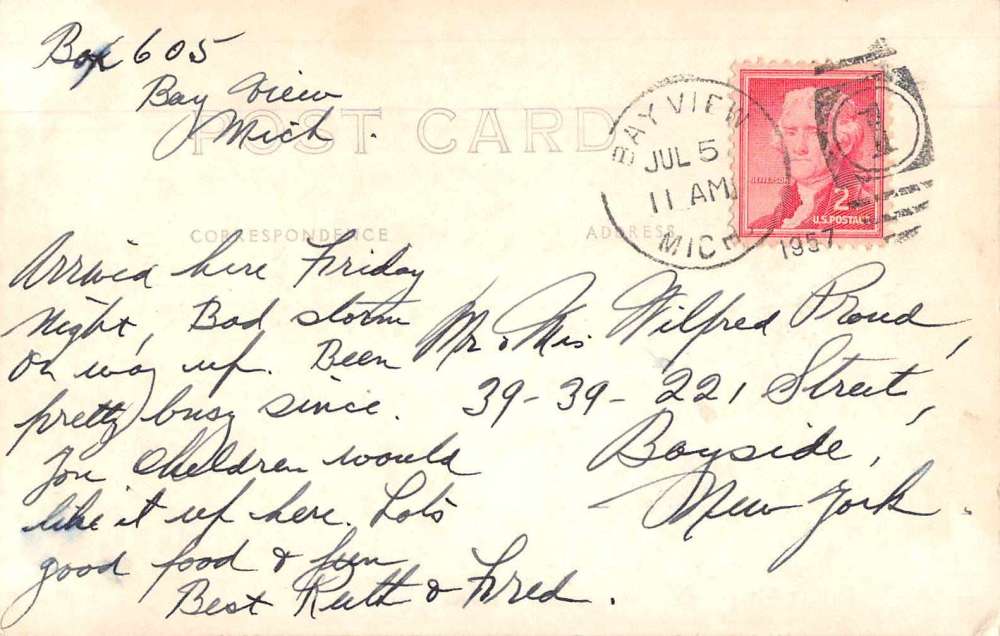 Box 605
Bay View
Mich.
POST CARD
BAY VIEW
JUL 5
11 AM
MICH
1957
JEFFERSON
2¢
U.S. POSTAGE
CORRESPONDENCE
ADDRESS
Arrived here Friday
Night, Bad storm
on way up. Been
pretty busy since.
You children would
like it up here. Lots
good food & fun
Best Ruth & Fred.
Mr. & Mrs. Wilfred Proud,
39-39-221 Street,
Bayside,
New York.